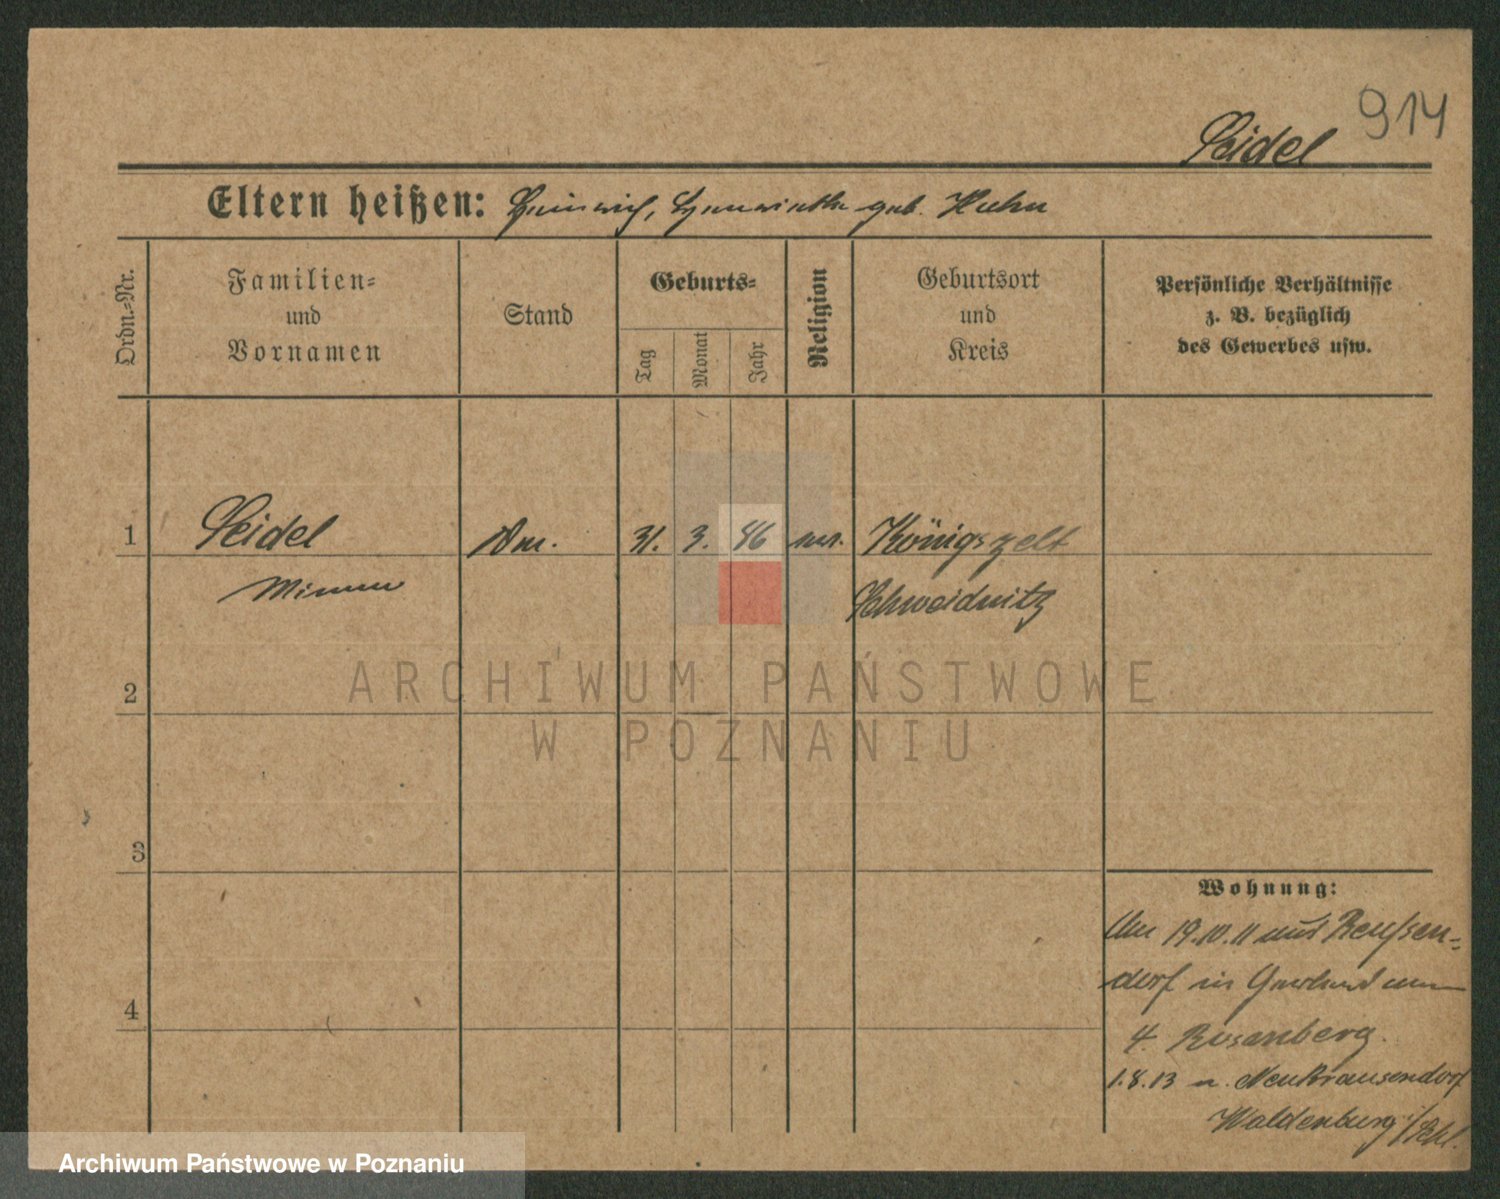 914
Seidel
Eltern heißen: Heinrich, Henriette geb. Huhn
Ordn.-Nr.
Familien-
und
Vornamen
Stand
Geburts-
Tag
Monat
Jahr
Religion
Geburtsort
und
Kreis
Persönliche Verhältnisse
z. B. bezüglich
des Gewerbes usw.
1 Seidel 31. 3. 86 Königszelt
Schweidnitz
2
ARCHIWUM PAŃSTWOWE
W POZNANIU
3
Wohnung:
19.10.11 aus Reußen-
dorf in
4
4. Rosenberg.
1.8.13 n. Neukrausendorf
Waldenburg i/Schl.
Archiwum Państwowe w Poznaniu